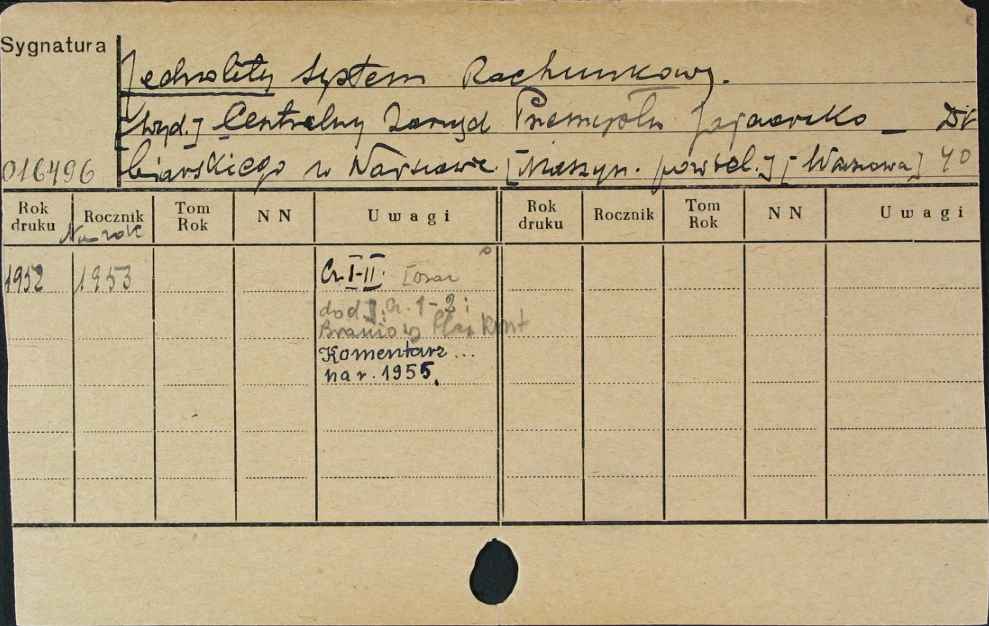 Sygnatura
Jednolity System Rachunkowy.
[Wyd.] Centralny Zarząd Przemysłu Jajczarsko - Dr
016496 biarskiego w Warszawie. [Maszyn. powiel.] [Warszawa] 40
Rok druku Rocznik Tom Rok NN Uwagi Rok druku Rocznik Tom Rok NN Uwagi
Na rok
1952 1953 Cz. I-II.
dod. Cz. 1-2:
Branżowy Plan Kont
Komentarz...
na r. 1955.